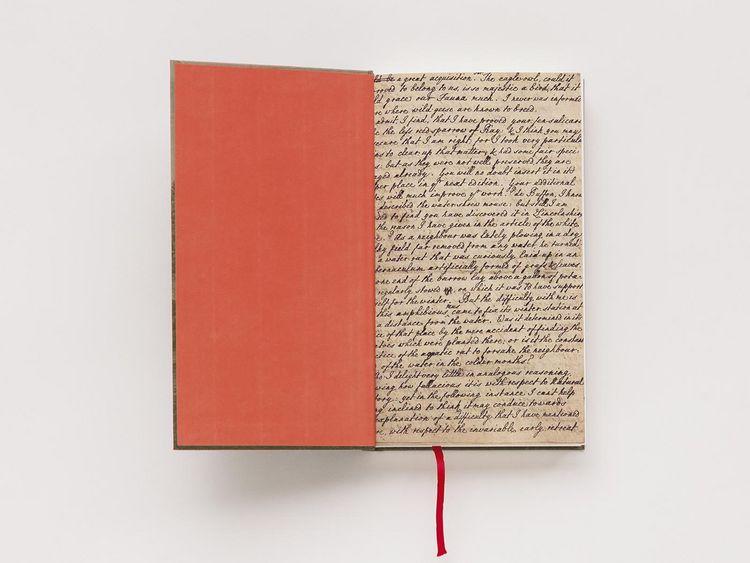 be a great acquisition. The eagle-owl, could it
to belong to us, is so majestic a bird, that it
grace our Fauna much. I never was informed
where wild geese are known to breed.
admit, I find, that I have proved your fen-salicaria
the less reed-sparrow of Ray; & I think you may
secure that I am right; for I took very particular
to clear up that matter, & had some fair speci
but as they were not well preserved, they are
already. You will no doubt insert it in its
place in yr next edition. Your additional
well much improve yr work. De Buffon, I know
described the water shrew mouse: but still I am
to find you have discovered it in Lincolnshire
the reason I have given in the article of the white
As a neighbour was lately plowing in a dry
field far removed from any water, he turned
a water rat that was curiously laid up in an
artificially formed of grass & leaves
one end of the burrow lay above a gallon of pota
regularly stowed, on which it was to have support
for the winter. But the difficulty with me is
this amphibious mus came to fix its winter station at
a distance from the water. Was it determined in its
of that place by the mere accident of finding the
which were planted there; or is it the constant
of the aquatic rat to forsake the neighbour
of the water in the colder months?
I delight very little in analogous reasoning,
how fallacious it is with respect to natural
yet in the following instance I can't help
inclined to think it may conduce towards
explanation of a difficulty that I have mentioned
with respect to the invariable early retreat